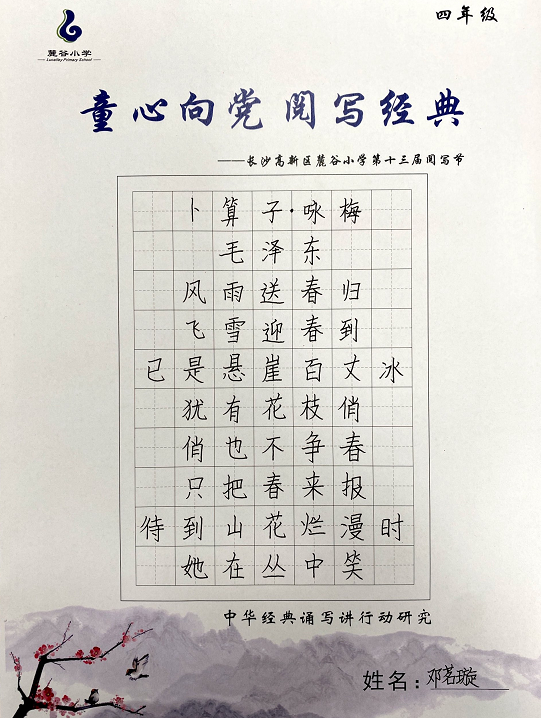 四年级
麓谷小学
Lucalley Primary School
童心向党 阅写经典
——长沙高新区麓谷小学第十三届阅写节
卜算子·咏梅
毛泽东
风雨送春归
飞雪迎春到
已是悬崖百丈冰
犹有花枝俏
俏也不争春
只把春来报
待到山花烂漫时
她在丛中笑
中华经典诵写讲行动研究
姓名：邓茗璇